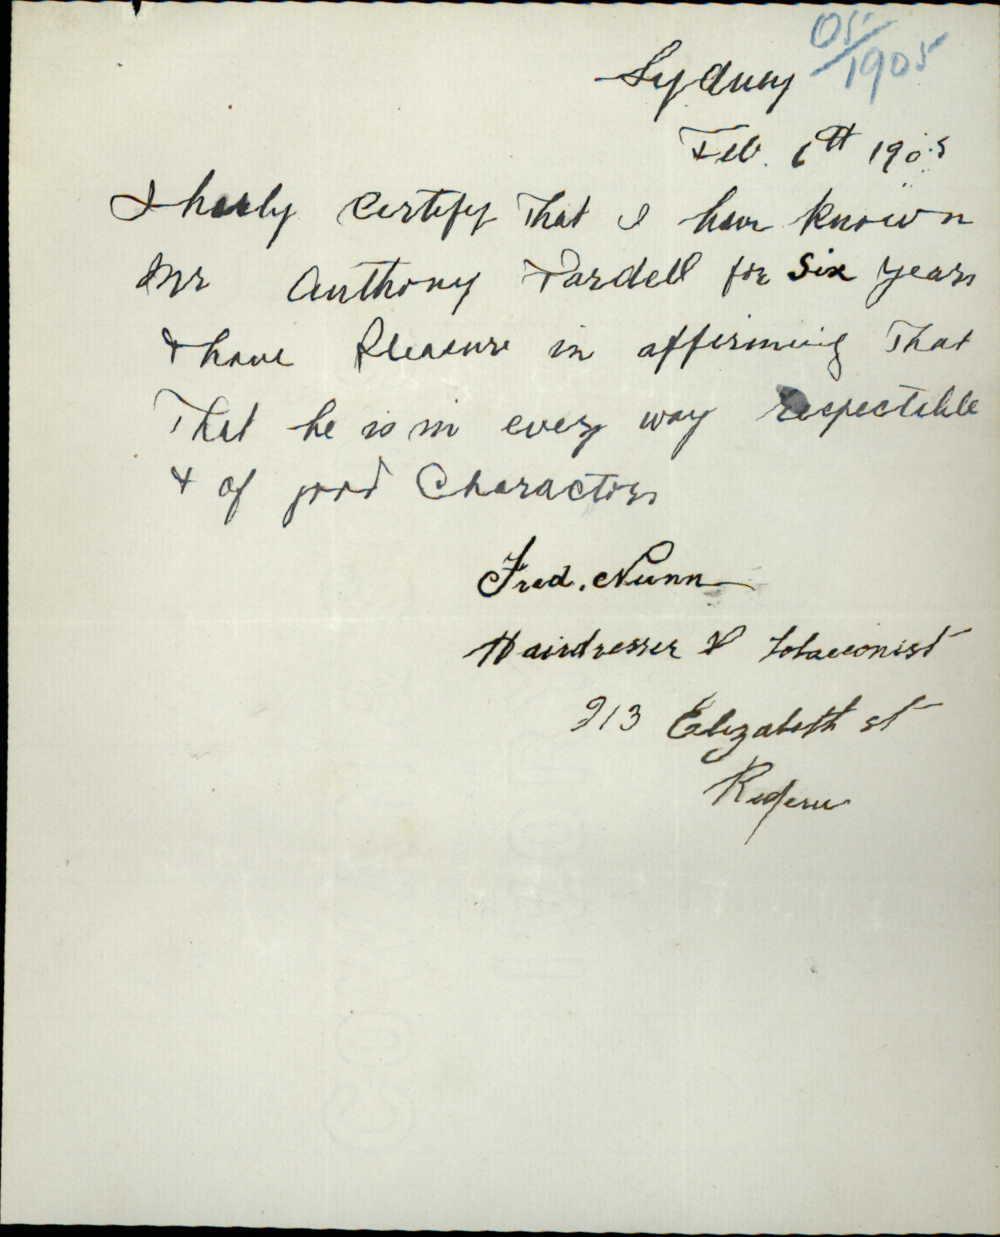 05/1905
Sydney
Feb. 6th 1905
I herby certify That I have known
Mr Anthony Pardell for Six years
& have Pleasure in affirming That
That he is in every way respectible
& of good Character
Fred. Nunn
Hairdresser & Tobacconist
913 Elizabeth st
Redfern